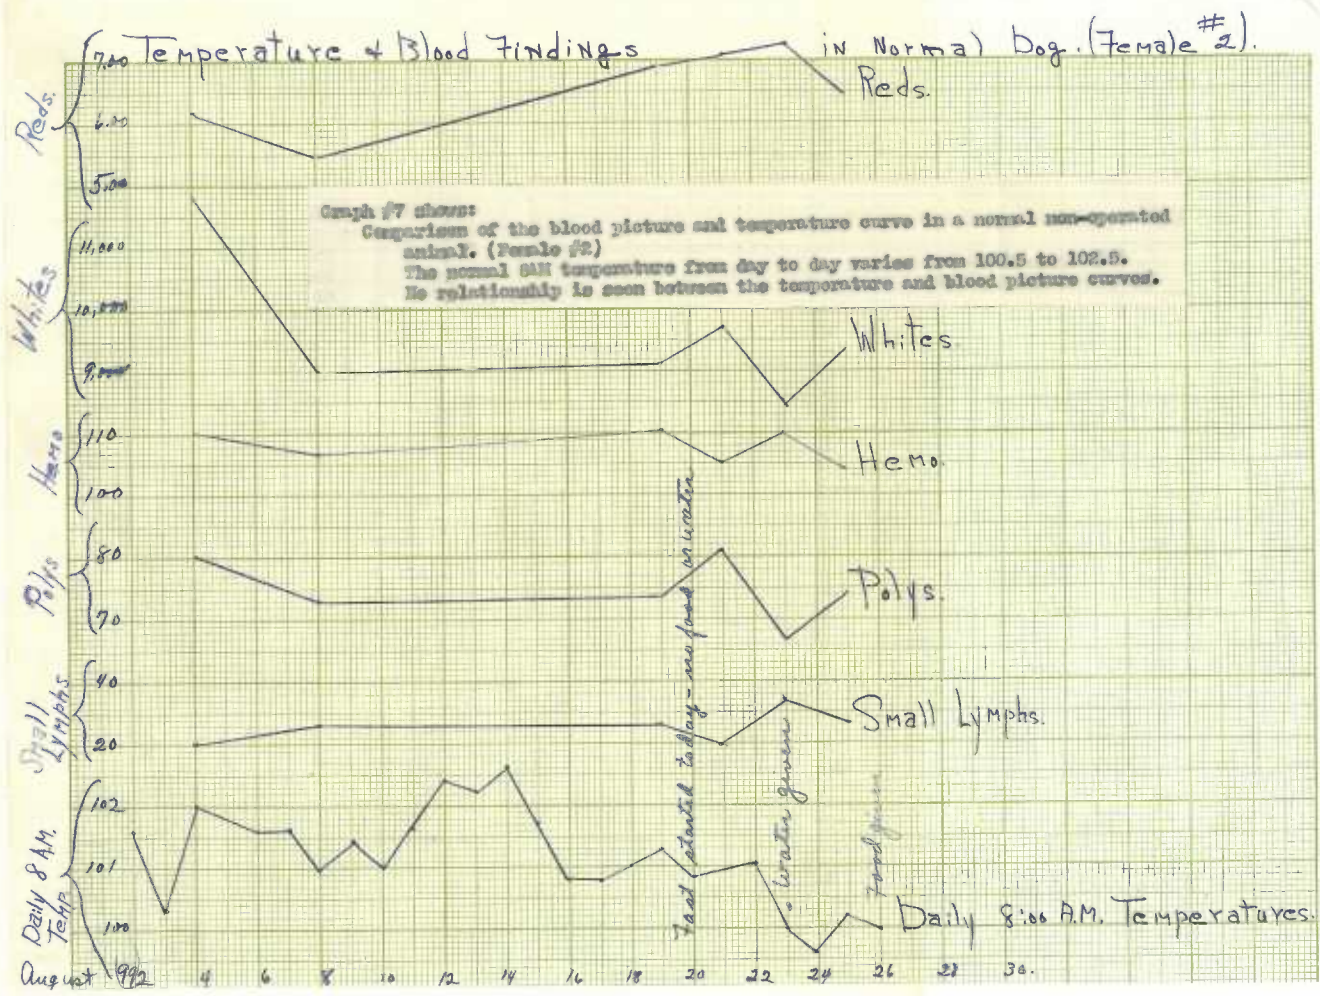 Temperature & Blood Findings in Normal Dog. (Female #2).
Reds.
7.00
6.00
5.00
Reds.
Graph #7 shows:
Comparison of the blood picture and temperature curve in a normal non-operated
animal. (Female #2)
The normal 8AM temperature from day to day varies from 100.5 to 102.5.
No relationship is seen between the temperature and blood picture curves.
Whites
11,000
10,000
9,000
Whites
Hemo
110
100
Hemo.
Polys
80
70
Polys.
Small Lymphs
40
20
Small Lymphs.
Daily 8 A.M. Temp.
102
101
100
Fast started today - no food or water
water given
Food given
Daily 8:00 A.M. Temperatures.
August 2 4 6 8 10 12 14 16 18 20 22 24 26 28 30.